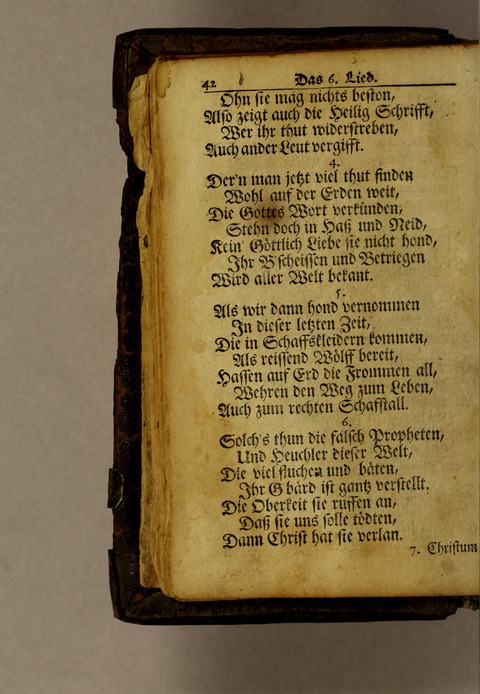 42 Das 6. Lied.
Ohn sie mag nichts beston,
Also zeigt auch die Heilig Schrifft,
Wer ihr thut widerstreben,
Auch ander Leut vergifft.
4.
Der'n man jetzt viel thut finden
Wohl auf der Erden weit,
Die Gottes Wort verkünden,
Stehn doch in Haß und Neid,
Kein' Göttlich Liebe sie nicht hond,
Ihr Bscheissen und Betriegen
Wird aller Welt bekant.
5.
Als wir dann hond vernommen
In dieser letzten Zeit,
Die in Schaffskleidern kommen,
Als reissend Wölff bereit,
Hassen auf Erd die Frommen all,
Wehren den Weg zum Leben,
Auch zum rechten Schafstall.
6.
Solch's thun die falsch Propheten,
Und Heuchler dieser Welt,
Die viel fluchen und bäten,
Ihr Gbärd ist gantz verstellt.
Die Oberkeit sie ruffen an,
Daß sie uns solle tödten,
Dann Christ hat sie verlan.
7. Christum